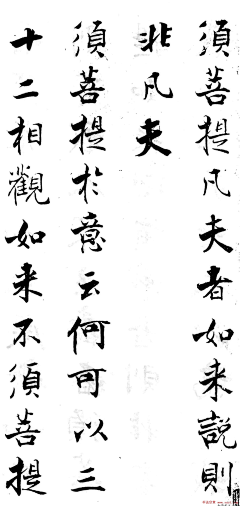 須菩提凡夫者如来説則
非凡夫
須菩提於意云何可以三
十二相觀如来不須菩提